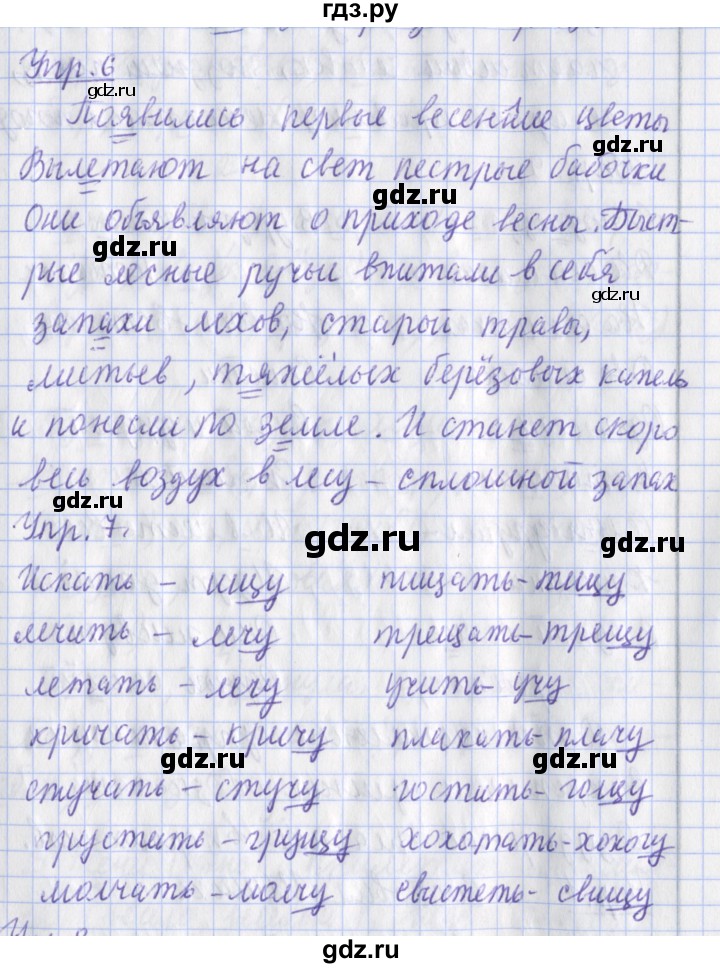 гдз.ру
Упр. 6
gdz.ru
Появились первые весенние цветы
gdz.ru
Вылетают на свет пестрые бабочки
gdz.ru
Они объявляют о приходе весны. Быст-
gdz.ru
рые лесные ручьи впитали в себя
gdz.ru
запахи мхов, старой травы,
листьев, тяжёлых берёзовых капель
и понесли по земле. И станет скоро
весь воздух в лесу – сплошной запах
gdz.ru
Упр. 7.
gdz.ru
gdz.ru
Искать – ищу пищать- пищу
лечить – лечу трещать- трещу
летать – лечу учить- учу
кричать – кричу плакать- плачу
gdz.ru
gdz.ru
стучать – стучу гостить- гощу
грустить – грущу хохотать- хохочу
молчать – молчу свистеть- свищу
gdz.ru